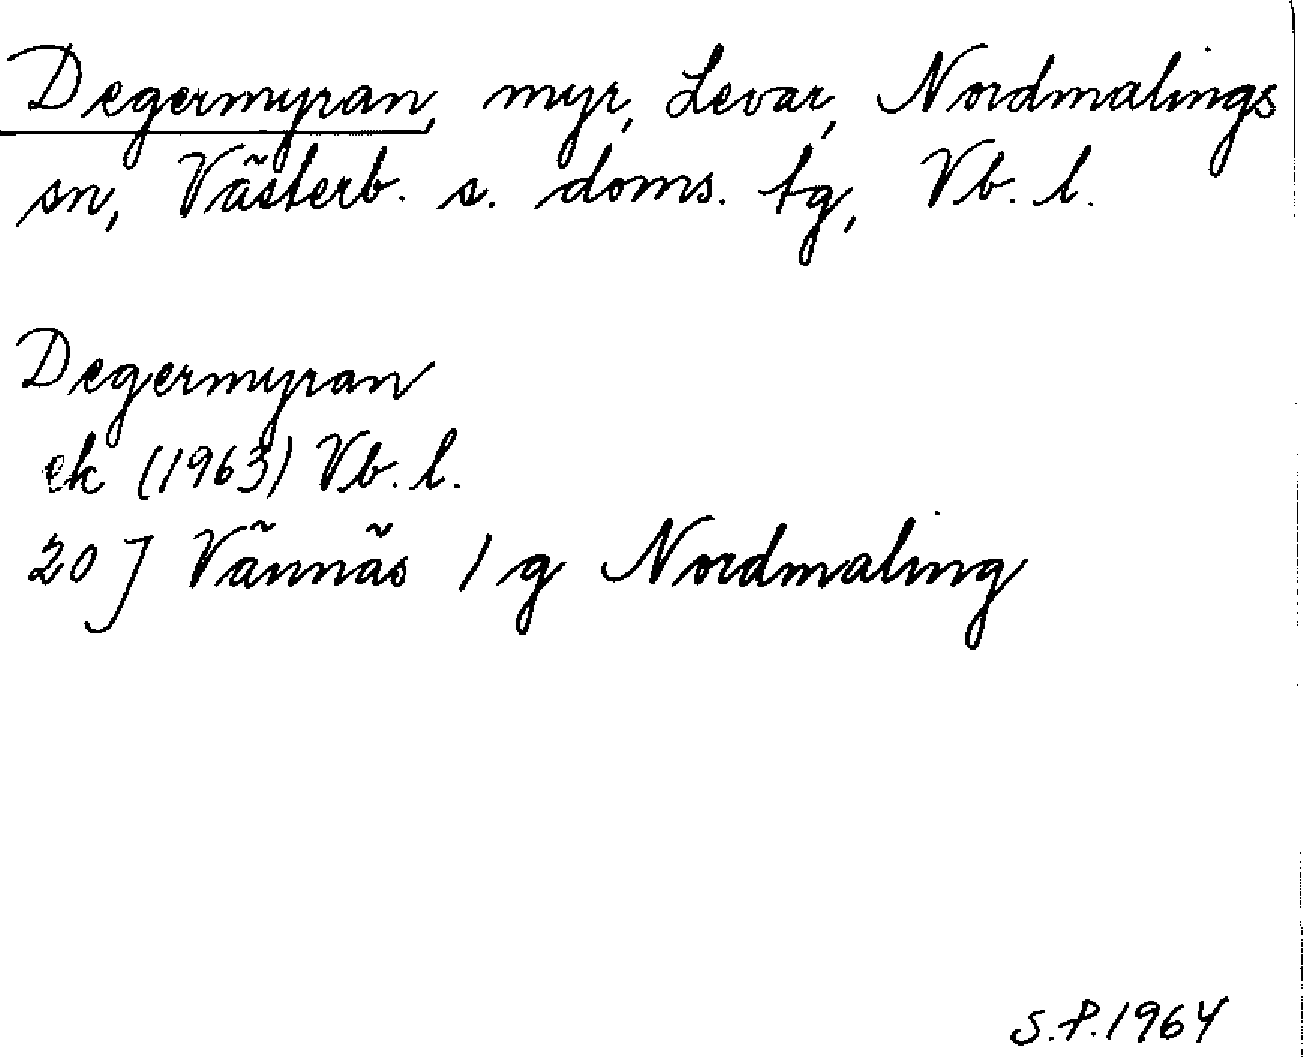 Degermyran, myr, Levar, Nordmalings
sn, Västerb. s. doms. tg, Vb. l.
Degermyran
ek (1963) Vb. l.
20 J Vännäs 1 g Nordmaling
S.P. 1964